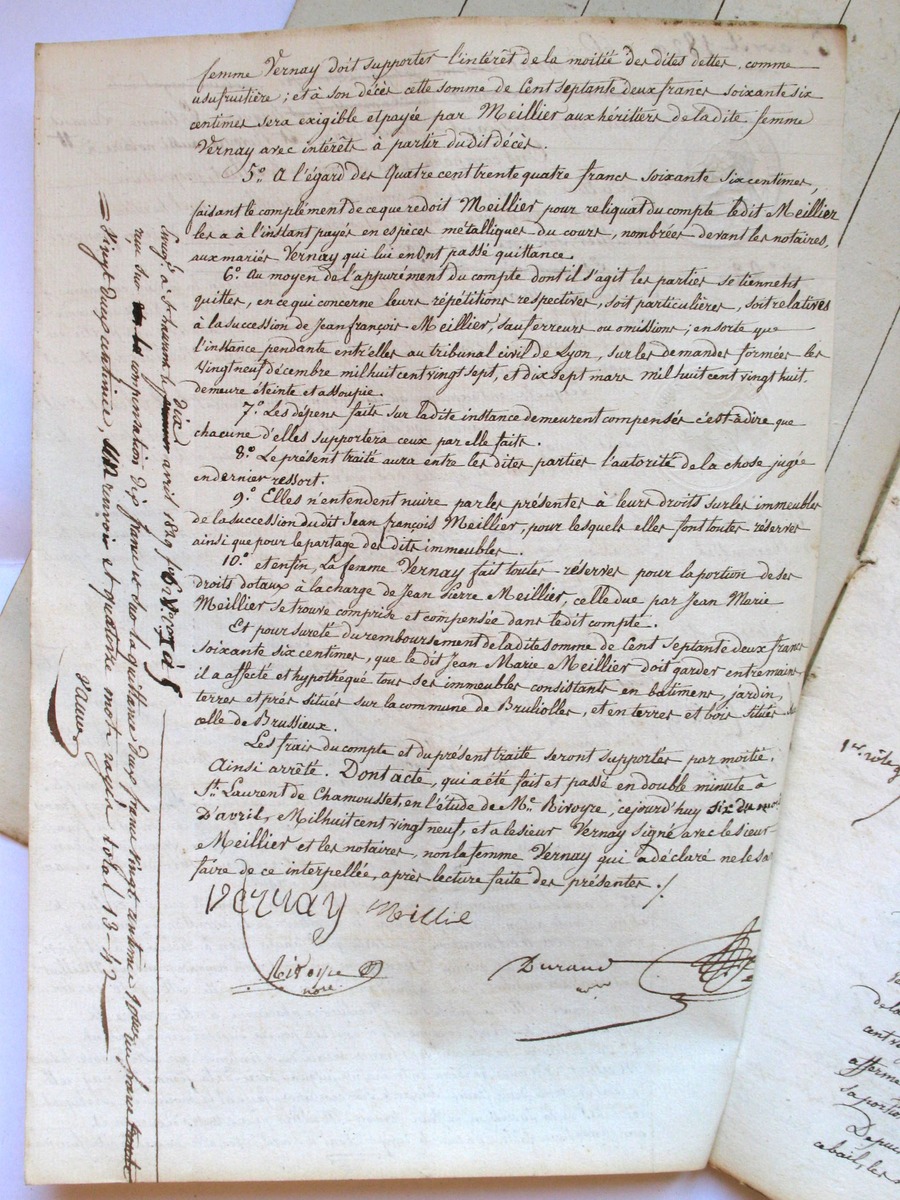 femme Vernay doit supporter l'intérêt de la moitié des dites dettes, comme
usufruitière ; et à son décès cette somme de Cent septante deux francs soixante six
centimes sera exigible et payée par Meillier aux héritiers de la dite femme
Vernay avec intérêts à partir du dit décès.
5.° A l'égard des Quatre cent trente quatre francs soixante six centimes,
faisant le complément de ce que redoit Meillier pour reliquat du compte ledit Meillier
les a à l'instant payés en espèces métalliques du cours, nombrées devant les notaires,
aux mariés Vernay qui lui en ont passé quittance.
6.° Au moyen de l'appurément du compte dont il s'agit les parties se tiennent
quittes, en ce qui concerne leurs répétitions respectives, soit particulières, soit relatives
à la succession de Jean françois Meillier, sauf erreurs ou omissions ; en sorte que
l'instance pendante entr'elles au tribunal civil de Lyon, sur les demandes formées les
Vingt neuf décembre mil huit cent vingt sept, et dix sept mars mil huit cent vingt huit.
demeure éteinte et assoupie.
7.° Les dépens faits sur la dite instance demeurent compensés c'est à dire que
chacune d'elles supportera ceux par elle faits.
8.° Le présent traité aura entre les dites parties l'autorité de la chose jugée
en dernier ressort.
9.° Elles n'entendent nuire par les présentes à leurs droits sur les immeubles
de la succession du dit Jean françois Meillier, pour lesquels elles font toutes réserves
ainsi que pour le partage des dits immeubles.
10.° et enfin, La femme Vernay fait toutes réserves pour la portion de ses
droits dotaux à la charge de Jean Pierre Meillier, celle due par Jean Marie
Meillier se trouve comprise et compensée dans le dit compte.
Et pour sureté du remboursement de la dite somme de Cent septante deux francs
soixante six centimes, que le dit Jean Marie Meillier doit garder entre mains,
il a affecté et hypothéqué tous ses immeubles consistants en bâtiments, jardin,
terres et prés situés sur la commune de Brulliolles, et en terres et bois situés
celle de Brussieux.
Les frais du compte et du présent traité seront supportés par moitié.
Ainsi arrêté. Dont acte, qui a été fait et passé en double minute à
St. Laurent de Chamousset, en l'étude de Me. Rivoyre, ce jourd'huy six du mois
D'avril, Mil huit cent vingt neuf, et a le sieur Vernay signé avec le sieur
Meillier et les notaires, non la femme Vernay qui a déclaré ne le sa
faire de ce interpellée, après lecture faite des présentes ./.
Vernay Meillié
Rivoyre
nore.
Durand
à St Laurent le dix avril 1829
compensation dix francs sur la quittance deux francs vingt centimes
Vingt deux centimes, un renvoi et quatorze mots rayés total 13-42
1er. rôle
dela
afferme
sa portion
Depuis
ce bail, les